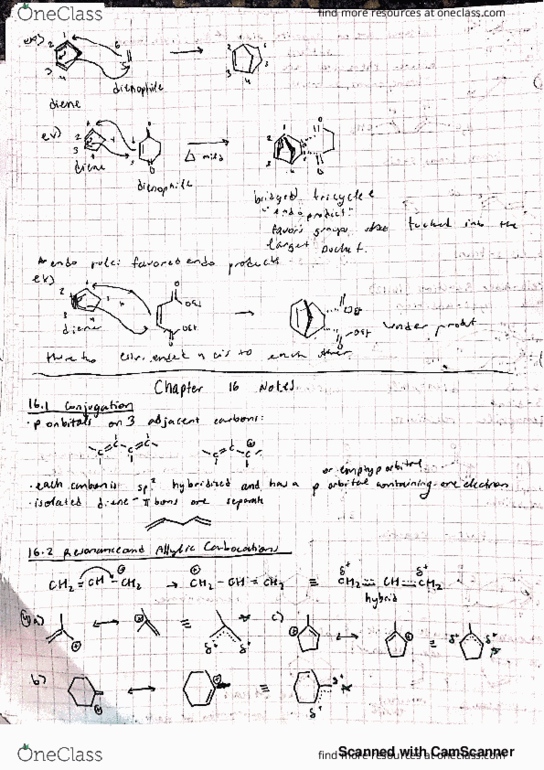 OneClass
find more resources at oneclass.com
ex)
dienophile
diene
ex)
diene
Δ mild
dienophile
bridged tricycle
"endo product"
favors groups
tucked into the
larger pocket.
endo rule: favored endo products
ex)
diene
OEt
OEt
OEt
OEt
product
cis to each other
Chapter 16 Notes
16.1 Conjugation
· p orbitals on 3 adjacent carbons:
or empty p orbital
· each carbon is sp² hybridized and has a p orbital containing one electron
· isolated diene - π bonds are separate
16.2 Resonance and Allylic Carbocations
CH₂=CH-CH₂ → CH₂-CH=CH₂ ≡ CH₂ CH CH₂
hybrid
a)
c)
b)
OneClass
find more resources at oneclass.com
Scanned with CamScanner